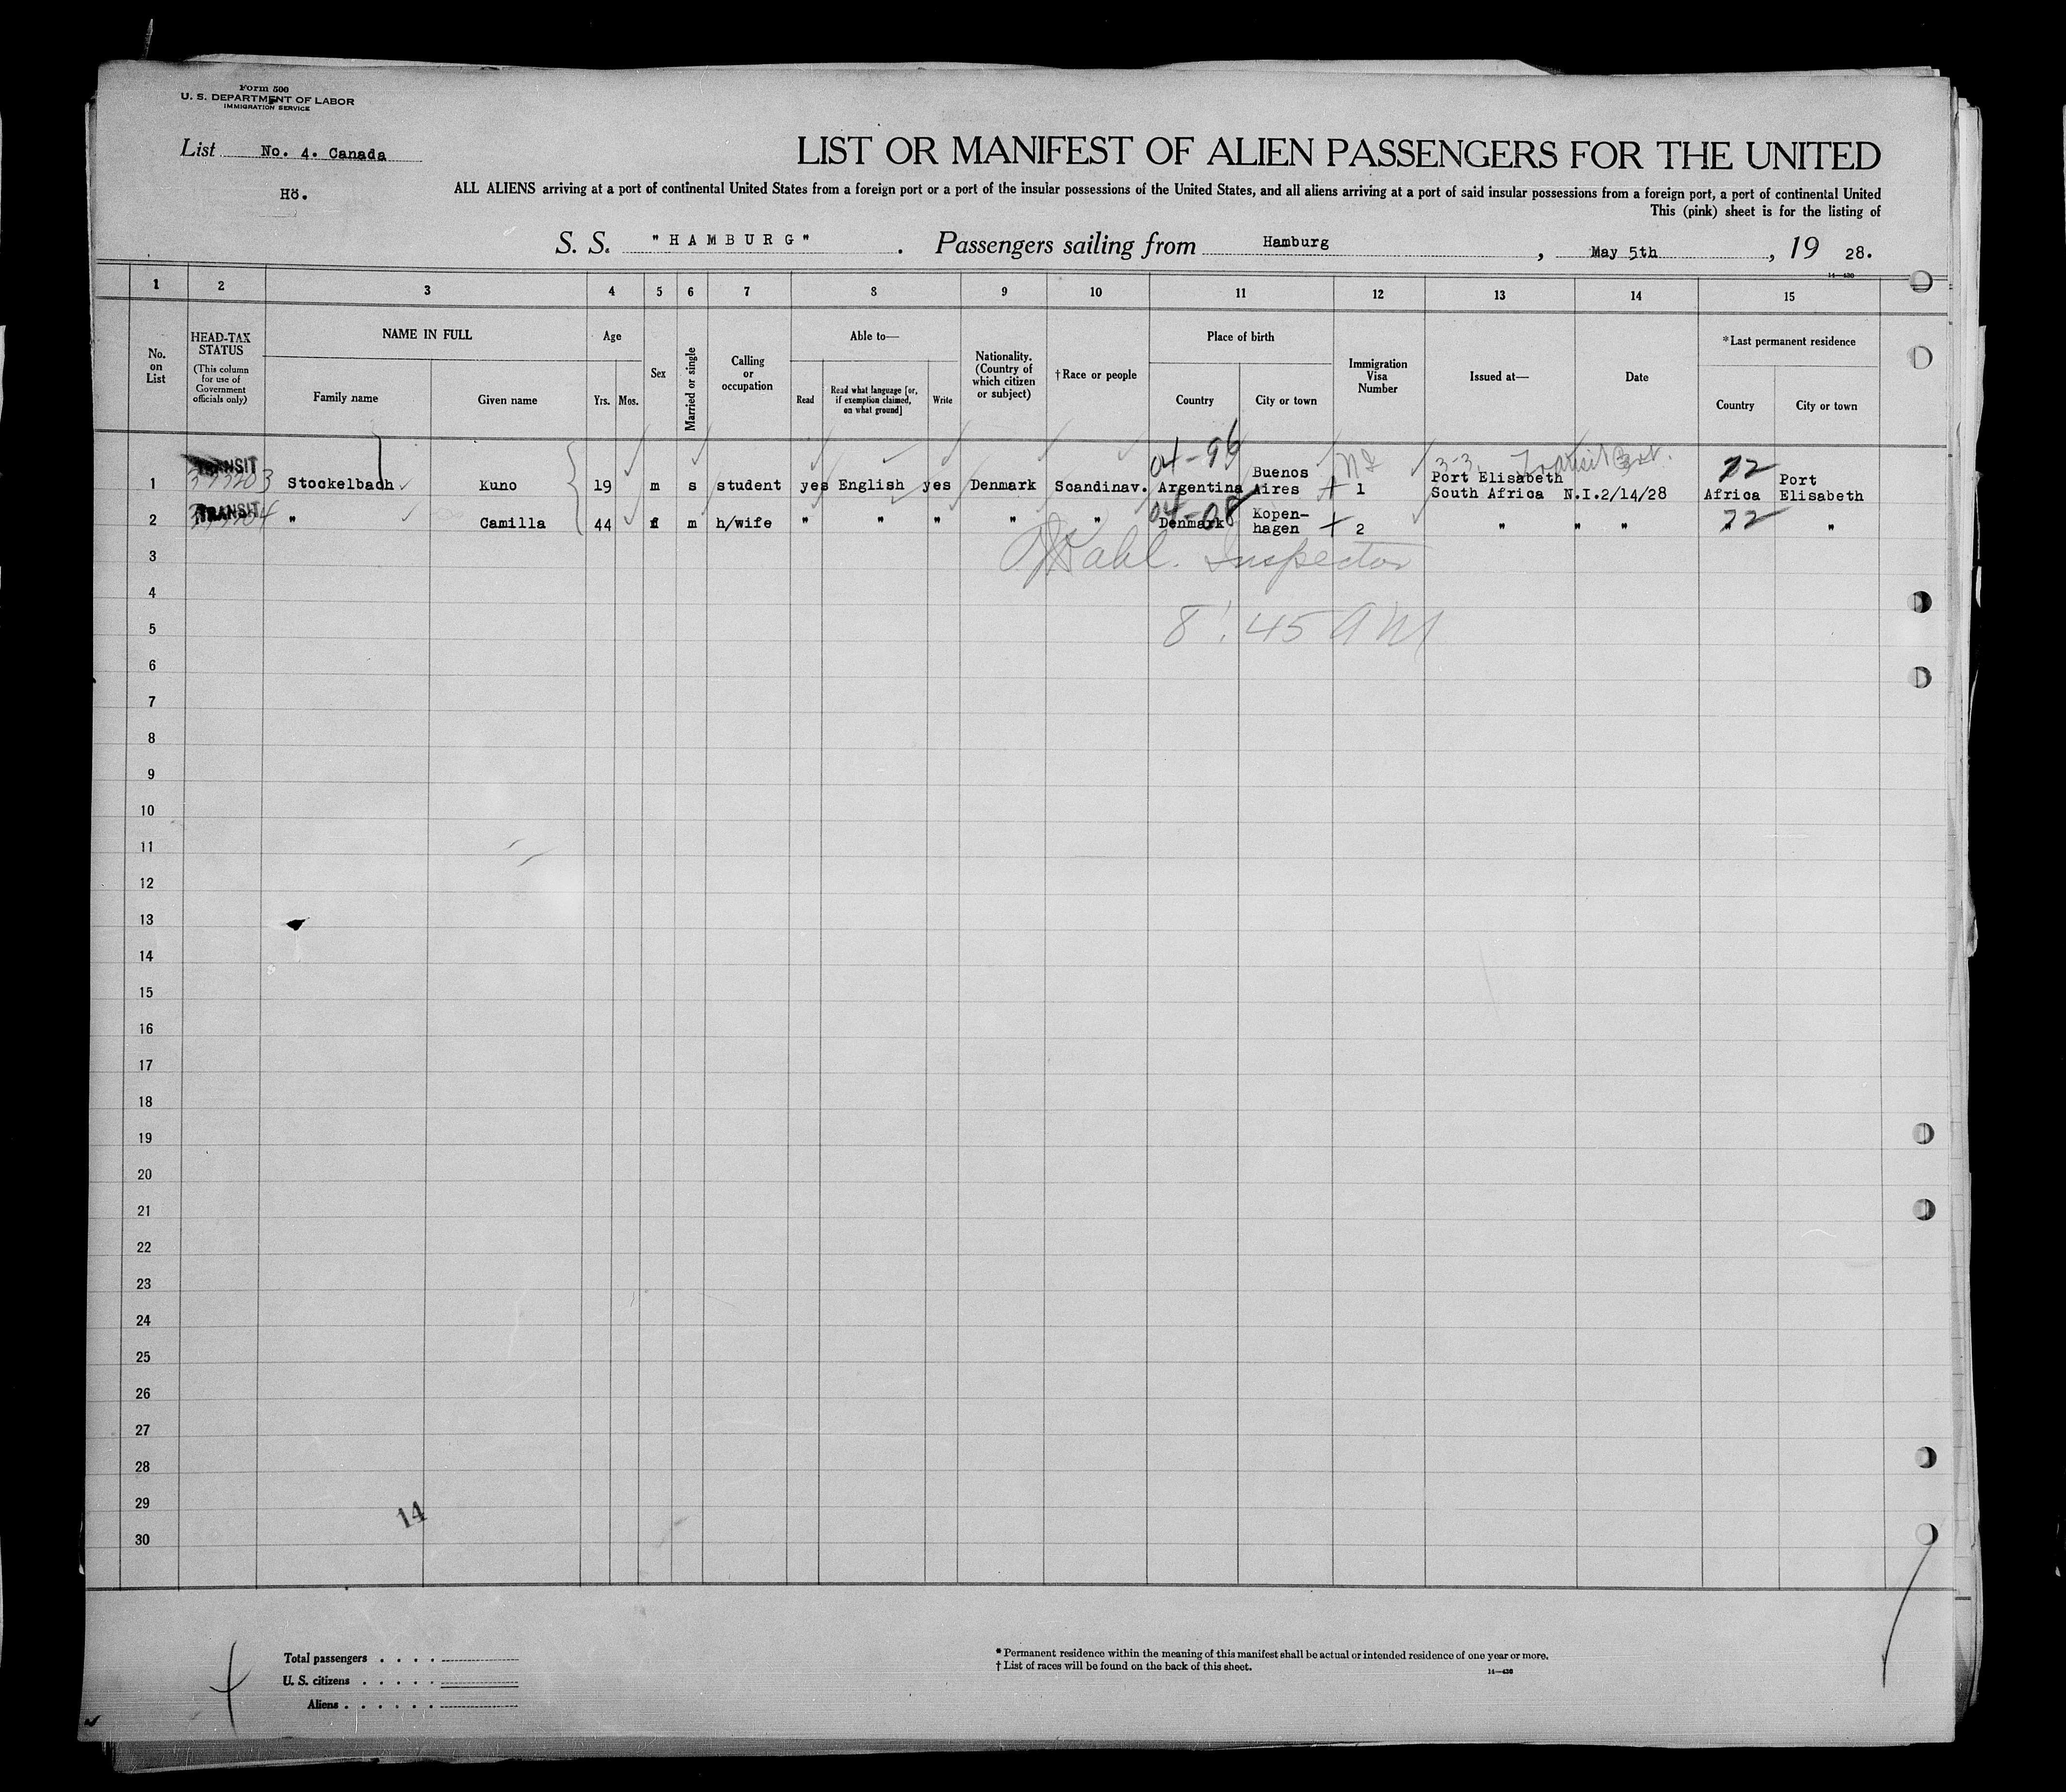 Form 500
U. S. DEPARTMENT OF LABOR
IMMIGRATION SERVICE
List No. 4. Canada
Hö.
LIST OR MANIFEST OF ALIEN PASSENGERS FOR THE UNITED
ALL ALIENS arriving at a port of continental United States from a foreign port or a port of the insular possessions of the United States, and all aliens arriving at a port of said insular possessions from a foreign port, a port of continental United
This (pink) sheet is for the listing of
S. S. "HAMBURG" . Passengers sailing from Hamburg , May 5th , 19 28.
1 2 3 4 5 6 7 8 9 10 11 12 13 14 15
No. on List
HEAD-TAX STATUS (This column for use of Government officials only)
NAME IN FULL
Family name
Given name
Age
Yrs. Mos.
Sex
Married or single
Calling or occupation
Able to—
Read
Read what language [or, if exemption claimed, on what ground]
Write
Nationality. (Country of which citizen or subject)
†Race or people
Place of birth
Country
City or town
Immigration Visa Number
Issued at—
Date
*Last permanent residence
Country
City or town
04-96
TRANSIT
1 Stockelbach Kuno 19 m s student yes English yes Denmark Scandinav. Argentina Buenos Aires 1 Port Elisabeth South Africa N.I.2/14/28 Africa Port Elisabeth
22
TRANSIT
04-08
2 " Camilla 44 f m h/wife " " " " " Denmark Kopen-hagen 2 " " " " "
22
3 Kahl. Inspector
4
5 8:45 AM
6
7
8
9
10
11
12
13
14
15
16
17
18
19
20
21
22
23
24
25
26
27
28
29
14
30
Total passengers . . . .
U. S. citizens . . . . .
Aliens . . . . . .
* Permanent residence within the meaning of this manifest shall be actual or intended residence of one year or more.
† List of races will be found on the back of this sheet.
14—430